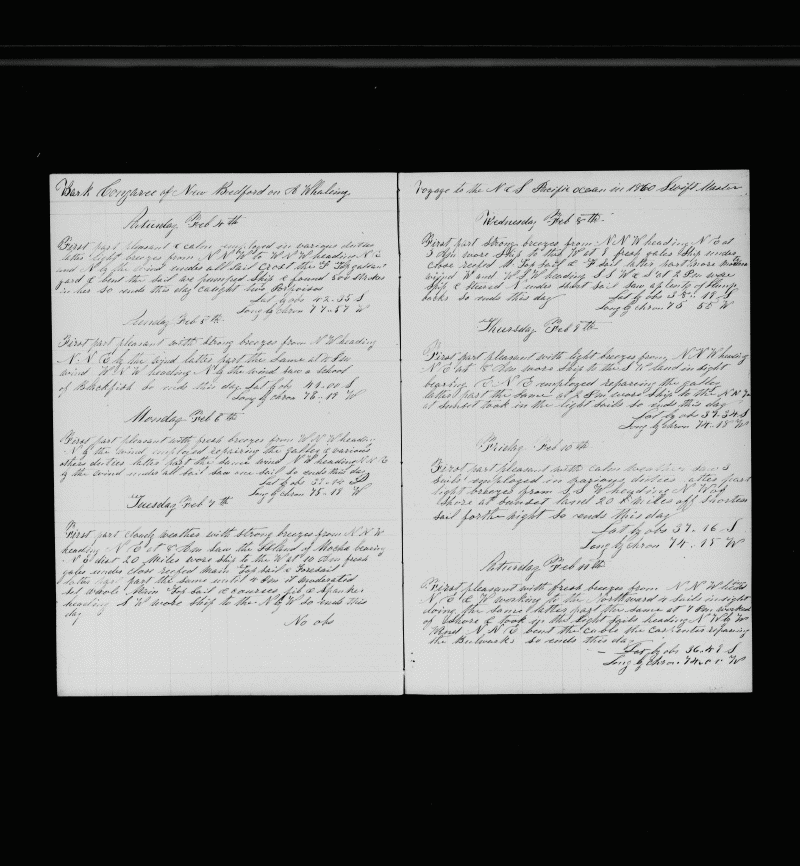 Bark Congaree of New Bedford on A Whaling
Saturday Feb 4th
First part pleasant & calm employed in various duties
latter light breezes from N N W to W N W heading N E
and N by the wind under all sail Crost the F Topgallant
yard & bent the sail we pumped ship & found 500 Strokes
in her so ends this day caught two Porpoises
Lat by obs 42.35 S
Long by chron 77.57 W
Sunday Feb 5th
First part pleasant with strong breezes from N W heading
N N E by the wind latter part the same at 4 Pm
wind W N W heading N by the wind saw a school
of Blackfish so ends this day Lat by obs 41.00 S
Long by chron 76.17 W
Monday Feb 6th
First part pleasant with fresh breezes from W N W heading
N by the wind employed repairing the galley & various
others duties latter part the same wind N W heading N N E
by the wind under all sail saw one sail so ends this day
Lat by obs S
Long by chron 75.18 W
Tuesday Feb 7th
First part cloudy weather with strong breezes from N N W
heading N E at 8 Am saw the Island of Mocha bearing
N E dist 20 Miles wore ship to the W at 10 Am fresh
gales under close reefed Main Top Sail & Foresail
latter part the same until 4 Pm it moderated
set whole Main Top Sail & courses jib & Spanker
heading S W wore ship to the N by W So ends this
day
No obs
Voyage to the N & S Pacific ocean in 1860 Swift Master
Wednesday Feb 8th
First part strong breezes from N N W heading N E at
3 Am wore ship to the W at fresh gales ship under
close reefed M Top sail & F sail latter part more moderate
wind W and W S W heading S S W & S at 2 Pm wore
ship & steered N under short sail saw a plenty of Hump
backs so ends this day Lat by obs 38.18 S
Long by chron 75 55 W
Thursday Feb 9th
First part pleasant with light breezes from N N W heading
N E at 8 Am wore ship to the S W land in sight
bearing E N E employed repairing the galley
latter part the same at 2 Pm wore ship to the N N E
at sunset took in the light sails so ends this day
Lat by obs 37.34 S
Long by chron 74.18 W
Friday Feb 10th
First part pleasant with calm weather saw 3
sails employed in various duties latter part
light breezes from S S W heading N W
shore at sunset land 20 Miles off Shorten
sail for the night So ends this day
Lat by obs 37.16 S
Long by chron 74.15 W
Saturday Feb 11th
First pleasant with fresh breezes from N N W
N E & W working to the northward 4 sails in sight
doing the same latter part the same at 7 Pm
of shore & took in the light sails heading N W by W
Wind N N E bent the cable the carpenter repairing
the Bulwarks So ends this day
Lat by obs 36.47 S
Long by chron W